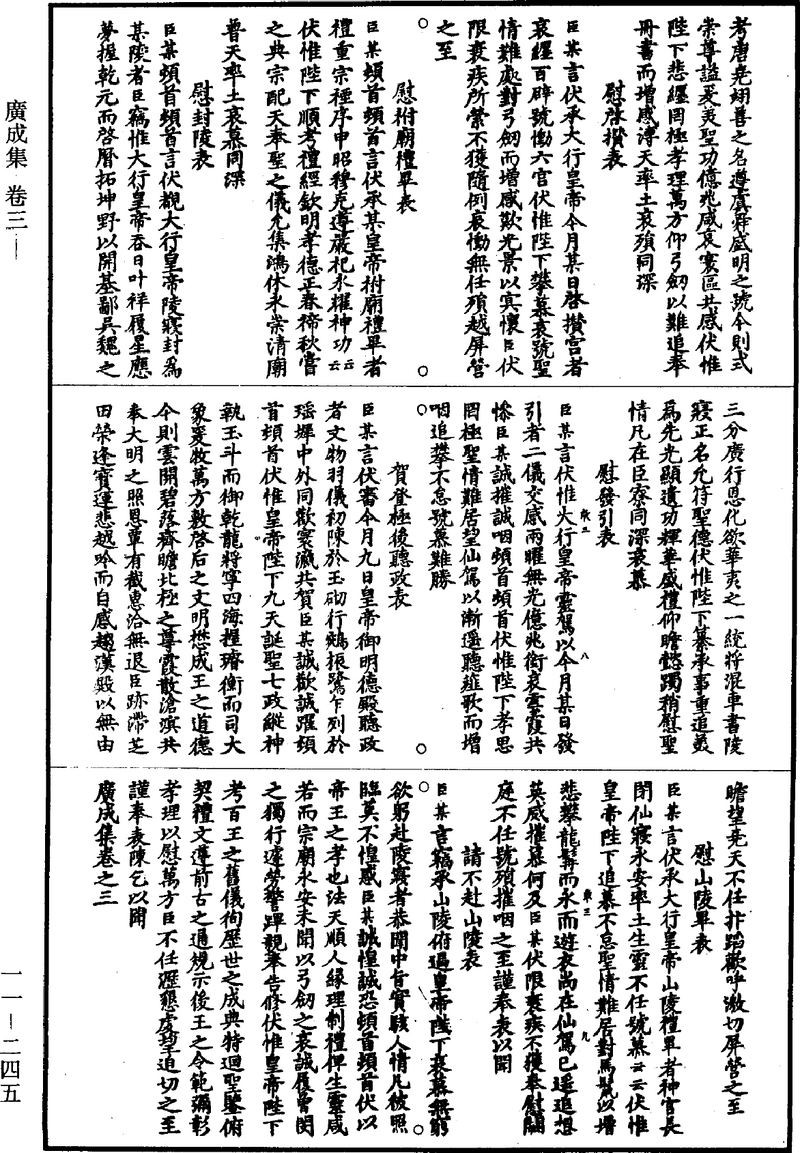 考唐堯翊善之名遵虞舜盛明之號今則式
崇尊謚爰美聖功億兆咸哀寰區共感伏惟
陛下悲纏罔極孝理萬方仰弓劔以難追奉
冊書而增感溥天率土哀殞同深
慰啓攢表
臣某言伏承大行皇帝今月某日啓攢宫者
哀經百辟號慟六宫伏惟陛下攀慕哀號聖
情難處對弓劔而增感歎光景以寘懷臣伏
限衰疾所縈不獲隨例哀慟無任殞越屏營
之至
慰祔廟禮畢表
臣某頓首頓首言伏承某皇帝祔廟禮畢者
禮重宗禋序申昭穆克遵嚴祀永耀神功云云
伏惟陛下順考禮經欽明孝德正春禘秋嘗
之典宗配天奉聖之儀允集鴻休永崇清廟
普天率土哀慕同深
慰封陵表
臣某頓首頓首言伏覩大行皇帝陵寢封爲
某陵者臣竊惟大行皇帝吞日叶祥履星應
夢握乾元而啓曆拓坤野以開基鄙吳魏之
三分廣行恩化欲華夷之一統將混車書陵
寢正名允符聖德伏惟陛下纂承事重追美
爲先光顯遺功輝華盛禮仰瞻懿躅稍慰聖
情凡在臣寮同深哀慕
慰發引表
臣某言伏惟大行皇帝靈駕以今月某日發
引者二儀交感兩曜無光億兆銜哀雲霞共
慘臣某誠摧誠咽頓首頓首伏惟陛下孝思
罔極聖情難居望仙駕以漸遥聽薤歌而增
咽追攀不怠號慕難勝
賀登極後聽政表
臣某言伏審今月九日皇帝御明德殿聽政
者文物羽儀初陳於玉砌行鵷振鷺乍列於
瑶墀中外同歡寰瀛共賀臣某誠歡誠躍頓
首頓首伏惟皇帝陛下九天誕聖七政縱神
執玉斗而御乾龍將寧四海握璿衡而司大
象爰牧萬方敷啓后之文明懋成王之道德
今則雲開碧落齊瞻北極之尊霞散滄溟共
奉大明之照恩覃有截惠洽無退臣跡滯芝
田榮逢寶運悲越吟而自感趨漢殿以無由
瞻望堯天不任抃蹈歡呼激切屏營之至
慰山陵畢表
臣某言伏承大行皇帝山陵禮畢者神官長
閉仙寢永安率土生靈不任號慕云云伏惟
皇帝陛下追慕不怠聖情難居對馬鬛以增
悲攀龍髯而永而遊衣尚在仙駕已遥追想
英威摧慕何及臣某伏限衰疾不獲奉慰闕
庭不任號殞摧咽之至謹奉表以聞
請不赴山陵表
臣某言竊承山陵俯逼皇帝陛下哀慕無窮
欲躬赴陵寢者恭聞中旨實駭人情凡彼照
臨莫不惶感臣某誠惶誠恐頓首頓首伏以
帝王之孝也法天順人緣理制禮俾生靈咸
若而宗廟永安未聞以弓劔之哀誠履曾閔
之獨行遽勞警蹕親奉告修伏惟皇帝陛下
考百王之舊儀徇歷世之成典特迴聖鑒俯
契禮文遵前古之通規示後王之令範彌彰
孝理以慰萬方臣不任瀝懇虔望追切之至
謹奉表陳乞以聞
廣成集卷之三
廣成集 卷三
一一—二四五